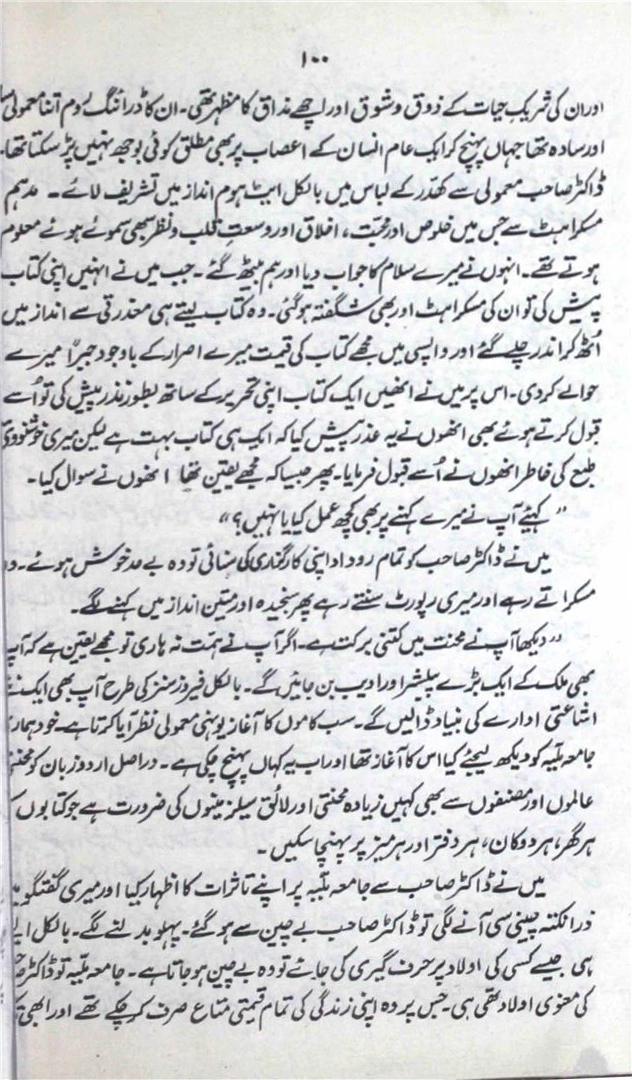 ۱۰۰
اور ان کی شریک حیات کے ذوق و شوق اور اچھے مذاق کا مظہر تھی۔ ان کا ڈرائنگ روم اتنا معمولی
اور سادہ تھا جہاں پہنچ کر ایک عام انسان کے اعصاب پر بھی مطلق کوئی بوجھ نہیں پڑ سکتا تھا۔
ڈاکٹر صاحب معمولی سے کھدر کے لباس میں بالکل ایٹ ہوم انداز میں تشریف لائے۔ مدہم
مسکراہٹ سے جس میں خلوص اور محبت، اخلاق اور وسعتِ قلب و نظر سبھی سموئے ہوئے معلوم
ہوتے تھے۔ انہوں نے میرے سلام کا جواب دیا اور ہم بیٹھ گئے۔ جب میں نے انہیں اپنی کتاب
پیش کی تو ان کی مسکراہٹ اور بھی شگفتہ ہوگئی۔ وہ کتاب لیتے ہی معذرتی سے انداز میں
اُٹھ کر اندر چلے گئے اور واپسی میں مجھے کتاب کی قیمت میرے اصرار کے باوجود جبراً میرے
حوالے کردی۔ اس پر میں نے انھیں ایک کتاب اپنی تحریر کے ساتھ بطور نذر پیش کی تو اُسے
قبول کرتے ہوئے بھی انھوں نے یہ عذر پیش کیا کہ ایک ہی کتاب بہت ہے لیکن میری خوشنودی
طبع کی خاطر انھوں نے اُسے قبول فرمایا۔ پھر جیسا کہ مجھے یقین تھا انھوں نے سوال کیا۔
"کہئیے آپ نے میرے کہنے پر بھی کچھ عمل کیا یا نہیں؟"
میں نے ڈاکٹر صاحب کو تمام روداد اپنی کارگذاری کی سنائی تو وہ بے حد خوش ہوئے۔ وہ
مسکراتے رہے اور میری رپورٹ سنتے رہے پھر سنجیدہ اور متین انداز میں کہنے لگے۔
"دیکھا آپ نے محنت میں کتنی برکت ہے۔ اگر آپ نے ہمت نہ ہاری تو مجھے یقین ہے کہ آپ
بھی ملک کے ایک بڑے پبلشر اور ادیب بن جائیں گے۔ بالکل فیروز سنز کی طرح آپ بھی ایک نئے
اشاعتی ادارے کی بنیاد ڈالیں گے۔ سب کاموں کا آغاز یونہی معمولی نظر آیا کرتا ہے۔ خود ہماری
جامعہ ملیہ کو دیکھ لیجئے کیا اس کا آغاز تھا اور اب یہ کہاں پہنچ چکی ہے۔ دراصل اردو زبان کو محنتی
عالموں اور مصنفوں سے بھی کہیں زیادہ محنتی اور لائق سیلزمینوں کی ضرورت ہے جو کتابوں
ہر گھر، ہر دوکان، ہر دفتر اور ہر میز پر پہنچا سکیں۔
میں نے ڈاکٹر صاحب سے جامعہ ملیہ پر اپنے تاثرات کا اظہار کیا اور میری گفتگو
ذرا نکتہ چینی سی آنے لگی تو ڈاکٹر صاحب بے چین سے ہو گئے۔ پہلو بدلنے لگے۔ بالکل
ہی جیسے کسی کی اولاد پر حرف گیری کی جائے تو وہ بے چین ہو جاتا ہے۔ جامعہ ملیہ تو ڈاکٹر
کی معنوی اولاد تھی ہی۔ جس پر وہ اپنی زندگی کی تمام قیمتی متاع صرف کر چکے تھے اور ابھی